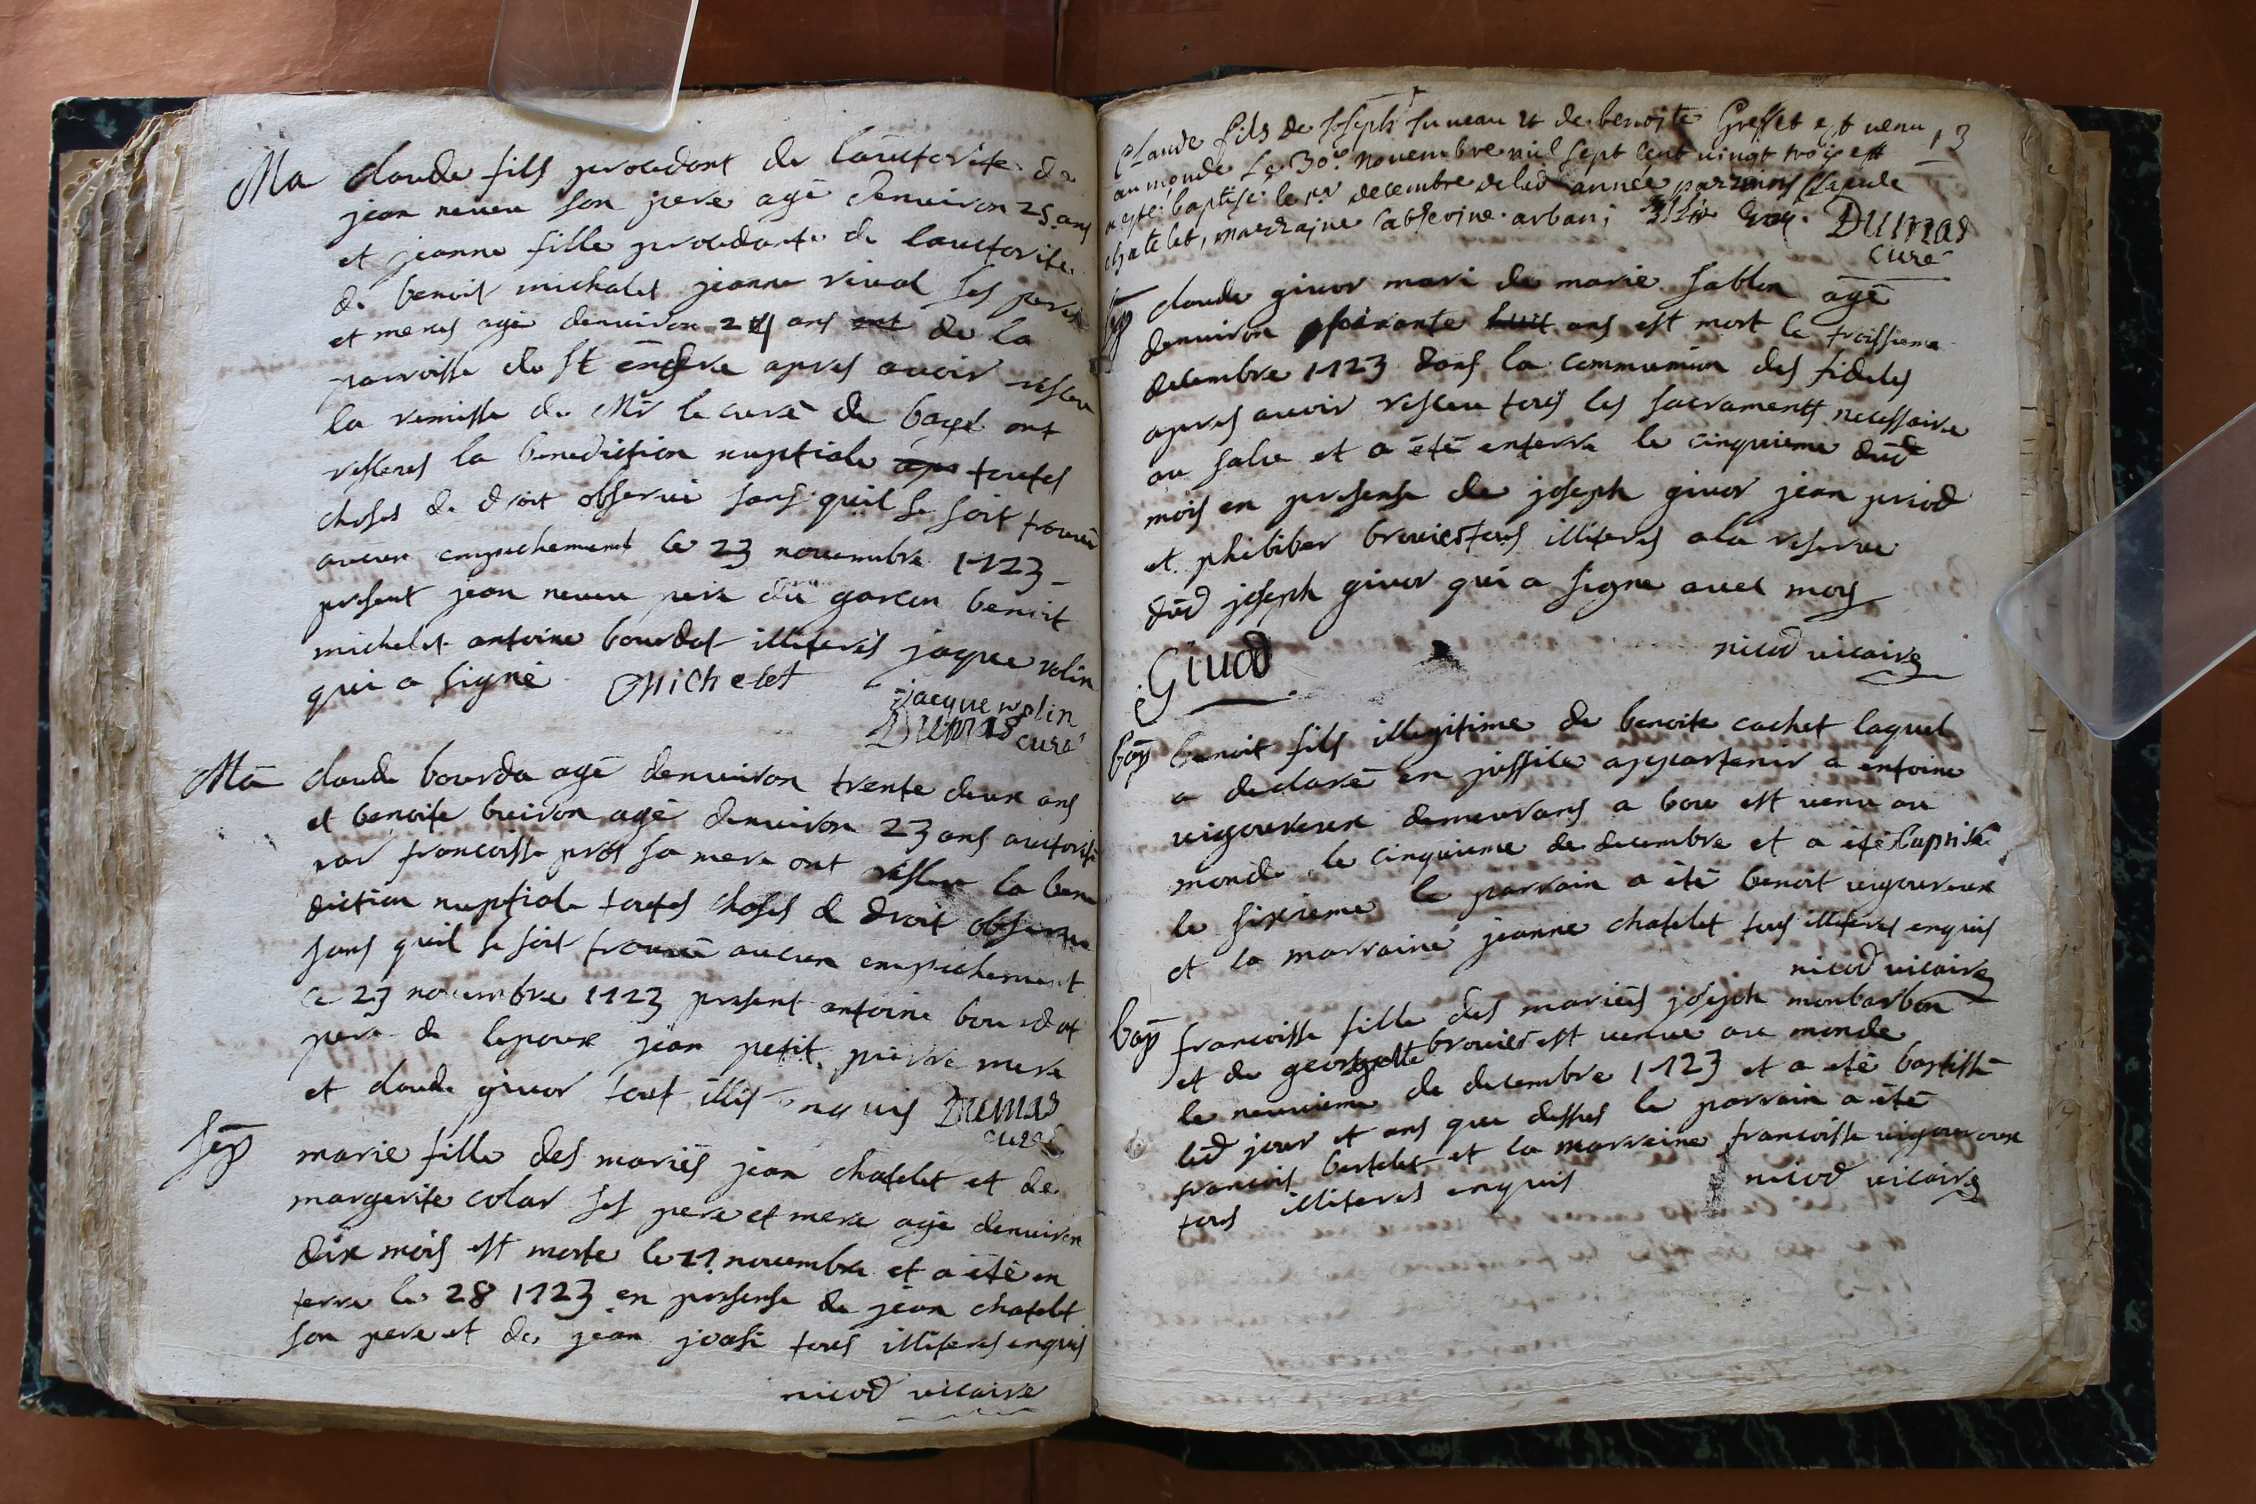 Ma claude fils procedant de l'auctorite de
jean neveu son pere agé d'environ 25 ans
et jeanne fille procedante de l'auctorite
de benoit michelet jeanne rival ses peres
et meres agé denviron 24 ans ent de la
parroisse de st endre apres avoir resceu
la remisse de Mr le curé de bagé ont
resceus la benediction nuptiale aps toutes
choses de droit observé sans quil se soit trouvé
aucun empechement le 23 novembre 1723
present jean neveu pere du garcon benoit
michelet antoine bourdat illiterés jaque volin
qui a signé Michelet
jacque volin
Dumas curé
Ma claude bourda agé denviron trente deux ans
et benoite buiron agé denviron 23 ans auctorisé
par francoisse pros sa mere ont resceu la bene
diction nuptiale toutes choses de droit observé
sans quil se soit trouvé aucun empechement
ce 23 novembre 1723 present antoine bourdat
pere de lepoux jean petit pierre mure
et claude givor tous illit enquis Dumas
curé
sep marie fille des mariés jean chatelet et de
margerite colar ses pere et mere agé denviron
dix mois est morte le 27 novembre et a été en
terre le 28 1723 en presense de jean chatelet
son pere et de jean joasi tous illiteres enquis
nicod vicaire
13
Claude fils de Joseph Juneau et de benoite Greffet est venu
au monde le 30e novembre mil sept cent vingt trois et
a esté baptisé le 1er decembre de lad année parrain Claude
chatelet, marraine Catherine arban; illit enq. Dumas
curé
sep claude givor mari de marie sablon agé
denviron soixante huit ans est mort le troissieme
decembre 1723 dans la communion des fideles
apres avoir resceu tous les sacrements necessaire
au salut et a été enterré le cinquieme dud
mois en presense de joseph givor jean priod
et phibiber brovier tous illiteres a la reserve
dud joseph givor qui a signe avec moy
nicod vicaire
Givod
bap benoit fils illegitime de benoite cachet laquel
a declaré en justice appartenir a entoine
vigoureux demeurans a bou est venu au
monde le cinquieme de decembre et a été baptisé
le sixieme le parrain a été benoit vigoureux
et la marraine jeanne chatelet tous illiteres enquis
nicod vicaire
bap francoisse fille des mariés joseph monbarbon
et de georgette brovier est venue au monde
le neuvieme de decembre 1723 et a été baptissé
led jour et ans que dessus le parrain a été
francois bertelet et la marraine francoisse vigoureux
tous illiteres enquis nicod vicaire